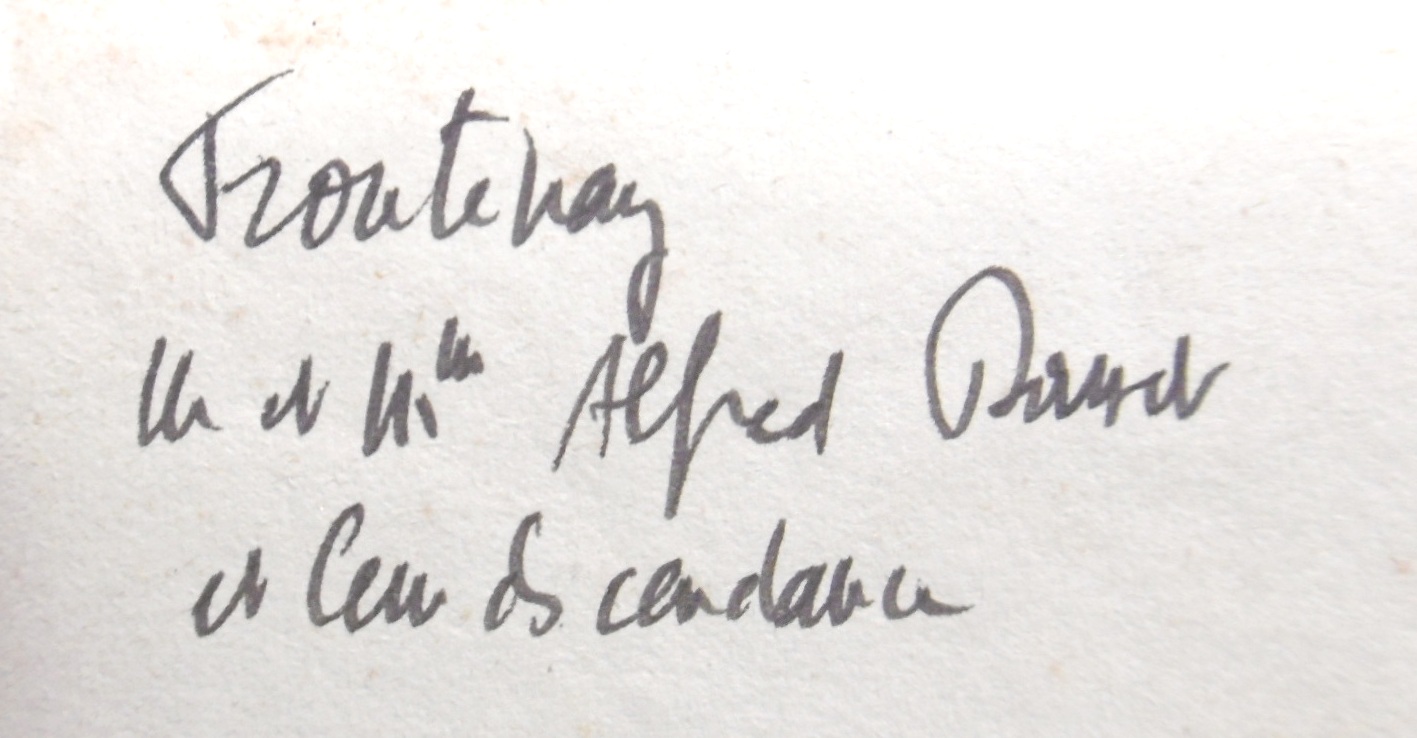 Frontenay
M et Mme Alfred
et leur descendance